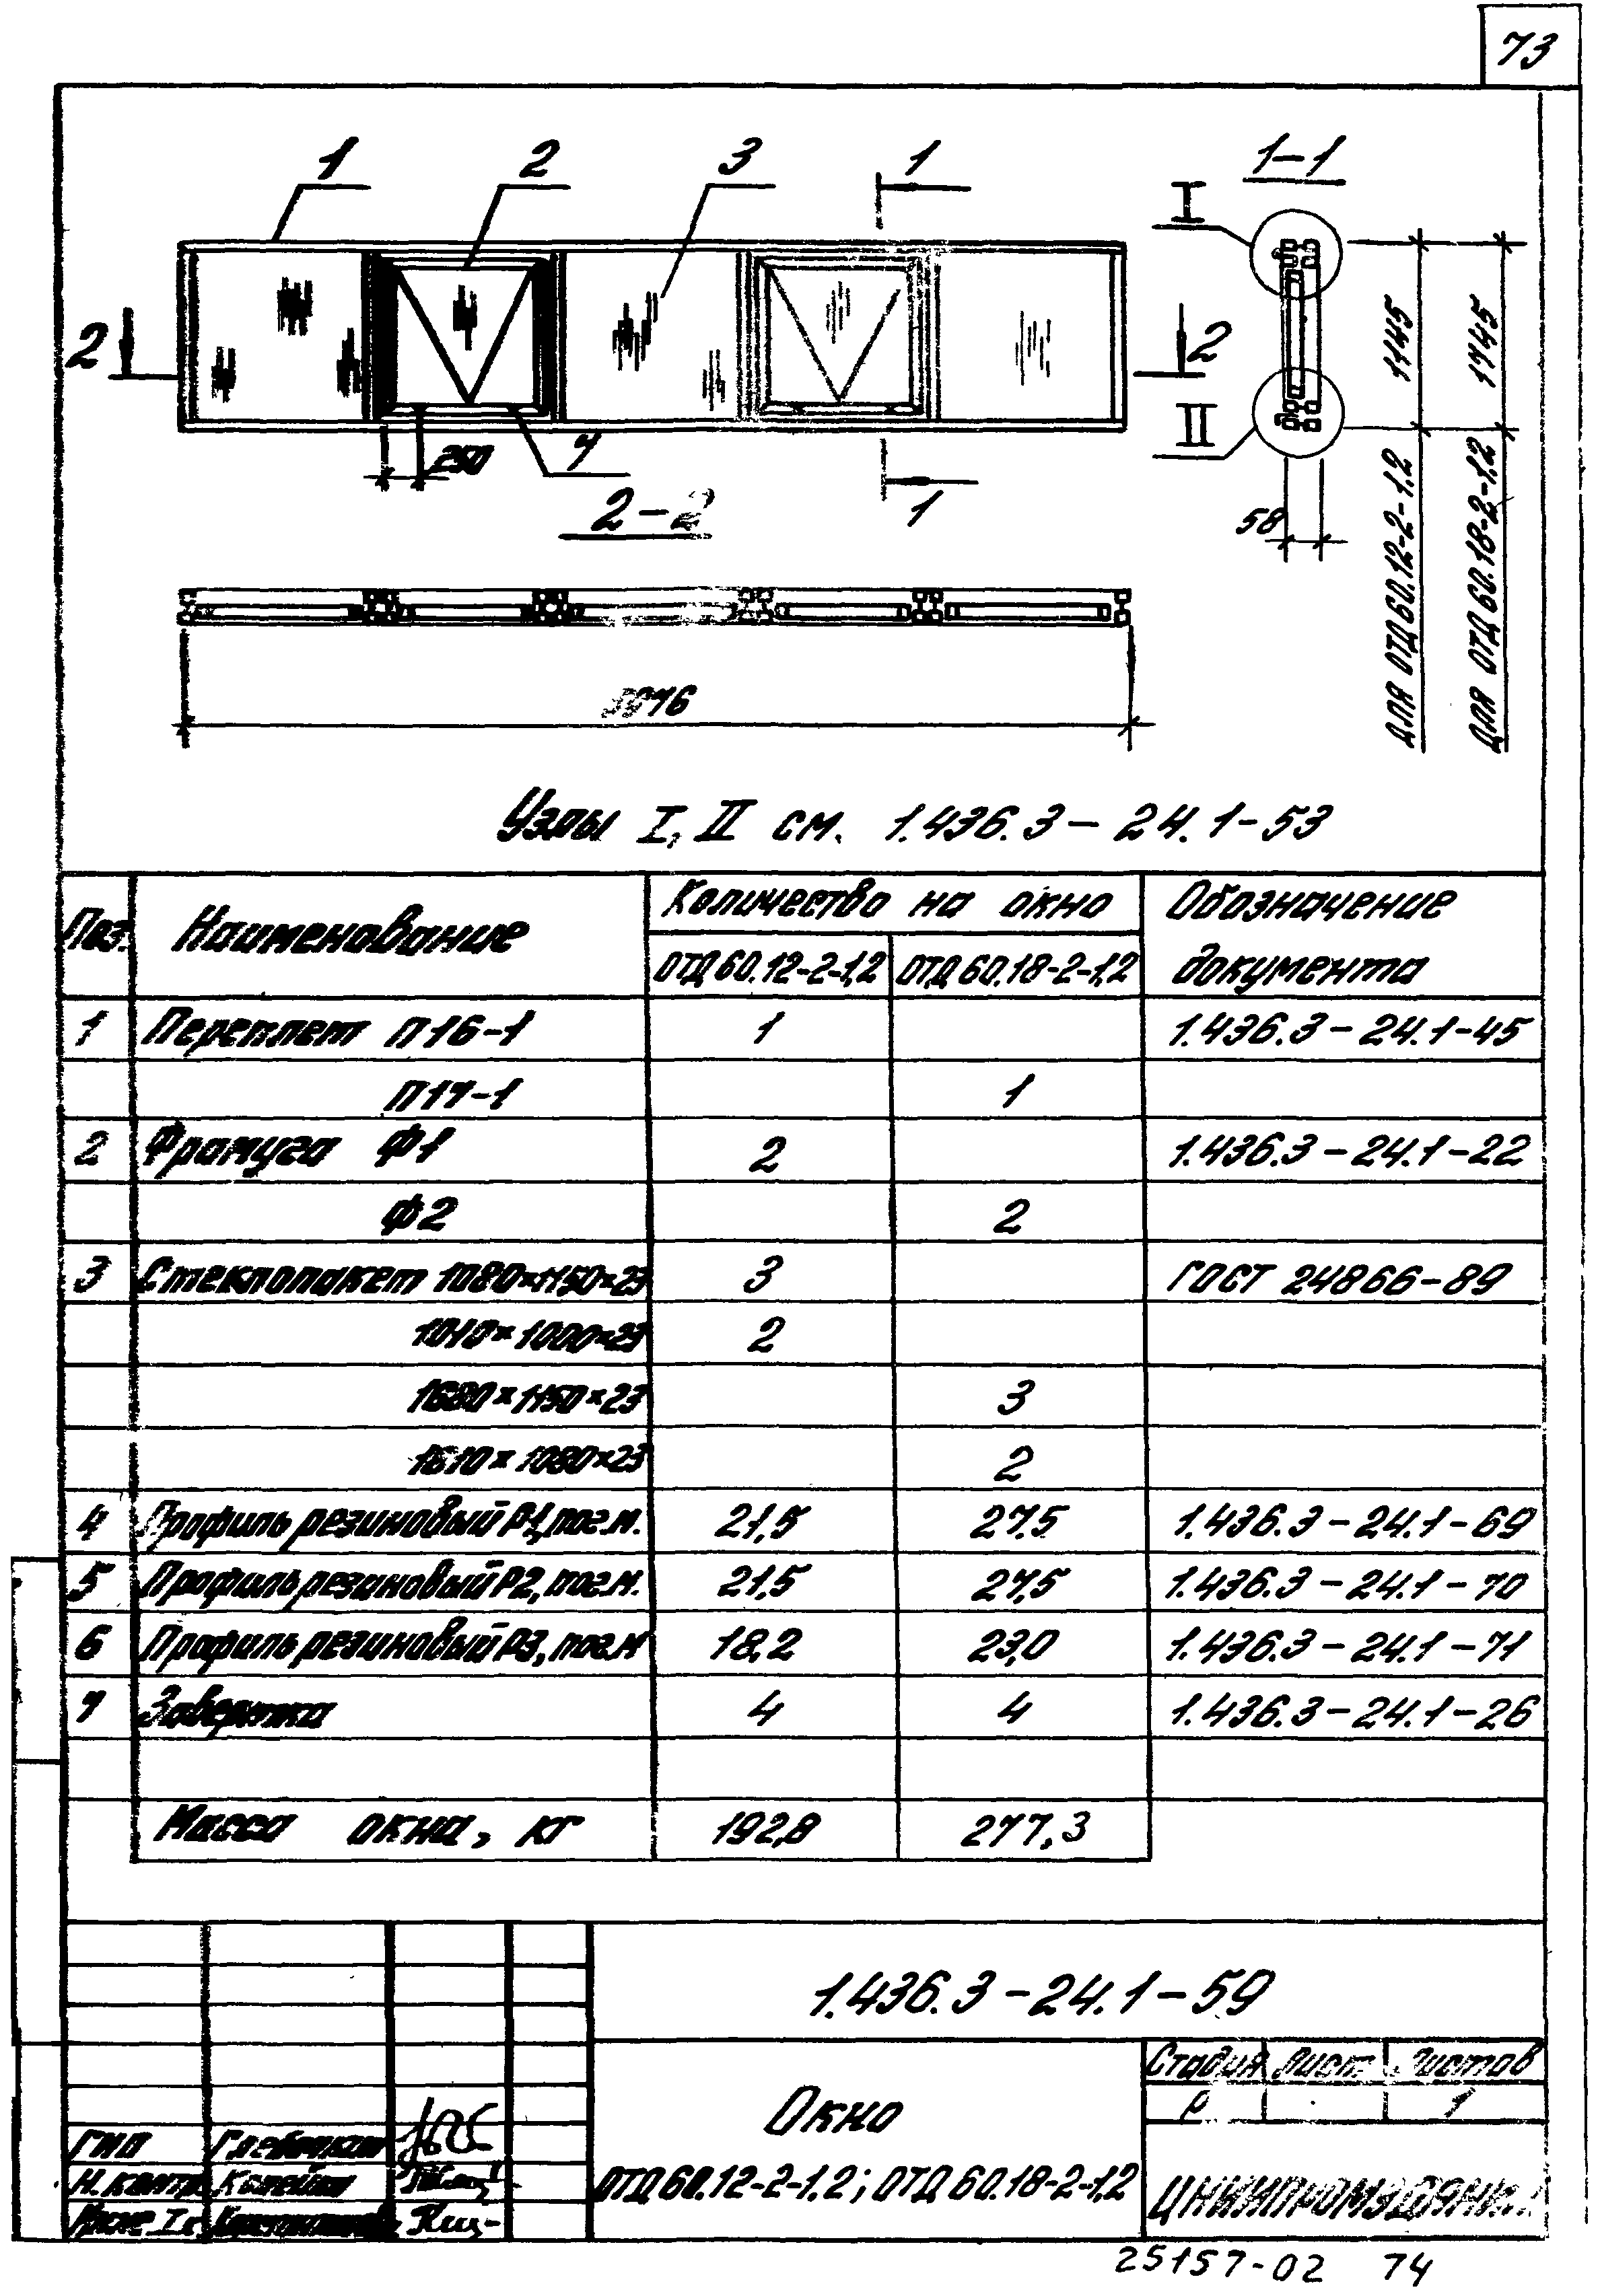 73
1 2 3 1 1-1
I
2 2
1145 1745
II
250 7
1
2-2
58
для ОТД60.12-2-1,2
для ОТД 60.18-2-1,2
Узлы I, II см. 1.436.3-24.1-53
Поз. Наименование Количество на окно Обозначение документа
ОТД 60.12-2-1,2 ОТД 60.18-2-1,2
1 Переплет П16-1 1 1.436.3-24.1-45
П17-1 1
2 Фрамуга Ф1 2 1.436.3-24.1-22
Ф2 2
3 Стеклопакет 1080×1150×23 3 ГОСТ 24866-89
2
1680×1150×23 3
2
4 Профиль резиновый Р1, пог.м. 21,5 27,5 1.436.3-24.1-69
5 Профиль резиновый Р2, пог.м. 21,5 27,5 1.436.3-24.1-70
6 Профиль резиновый Р3, пог.м 18,2 23,0 1.436.3-24.1-71
7 Завертка 4 4 1.436.3-24.1-26
Масса окна, кг 192,8 277,3
1.436.3-24.1-59
Стадия Лист Листов
Р 1
Окно
ОТД60.12-2-1,2; ОТД 60.18-2-1,2
ГИП
Н. контр.
25157-02 74